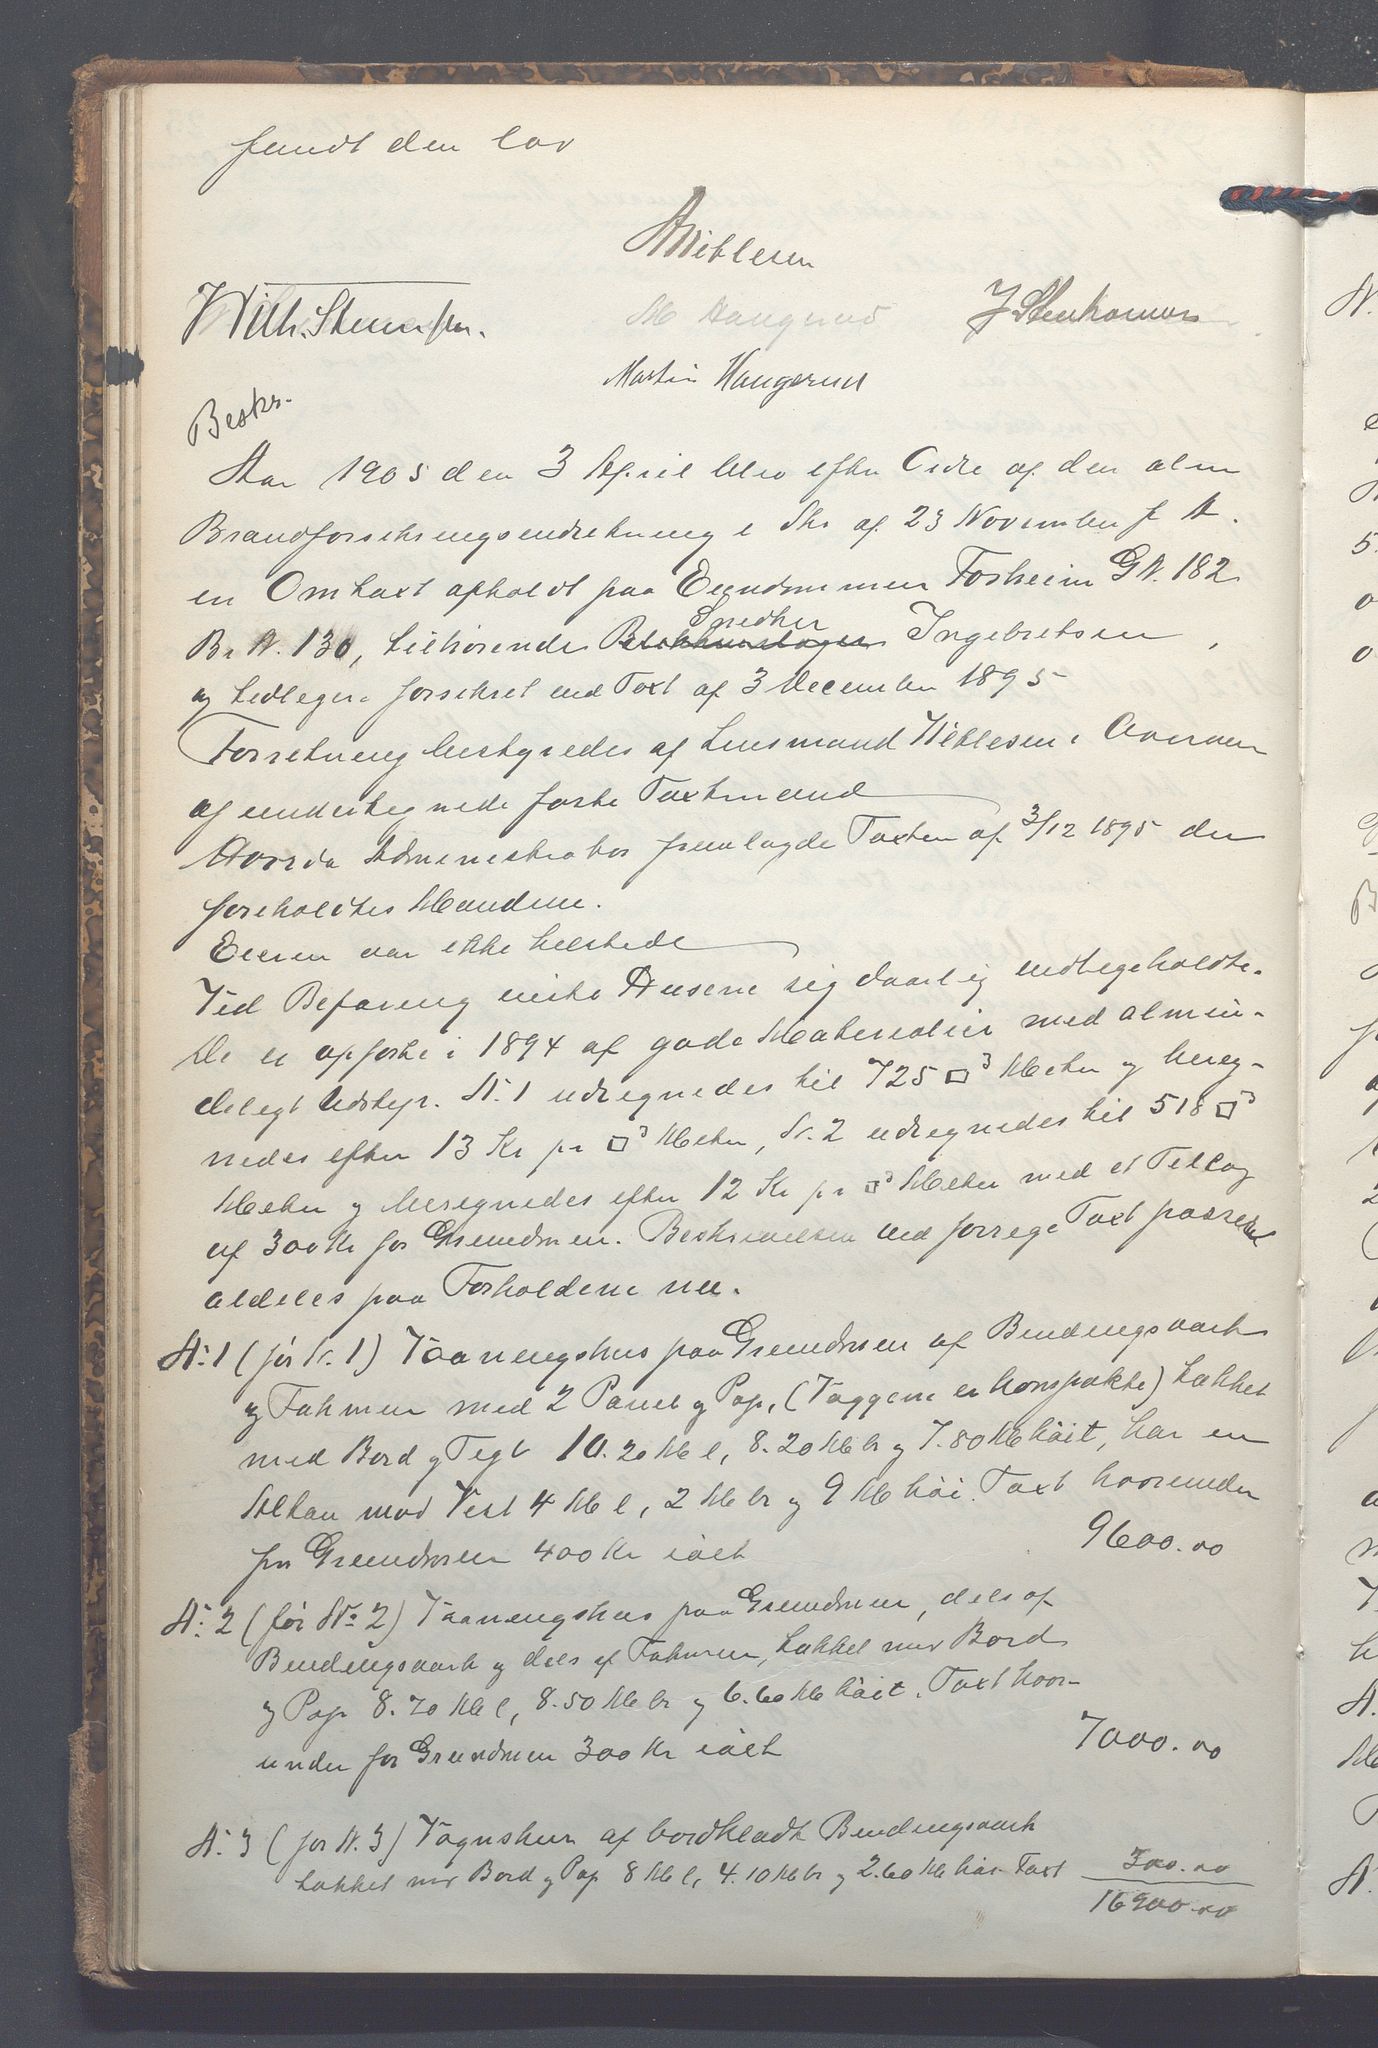 fundt den lov
A Wiklesen
Wilh. Stenersen. M Haugerud J Stenhamar
Martin Haugerud
Beskr.
Aar 1905 den 3 April blev efter Ordre af den alm
Brandforsikringsindretning i Skr af 23 November f A.
en Omtaxt afholdt paa Eiendommen Fosheim G N. 182
Snedker
Br N. 130, tilhørende Ingebretsen,
og tidligere forsikret ved Taxt af 3 December 1895
Forretning bestyredes af Lensmand Wiklesen i Overvær
af undertegnede faste Taxtmænd
Hvorda Administrator fremlagde Taxten af 3/12 1895 der
foreholdtes Mændene.
Eieren var ikke tilstede
Ved Befaring viste Husene sig daarlig vedligeholdte.
De er opførte i 1894 af gode Materialier med almin-
deligt Udstyr. N. 1 udregnedes til 725 □3 Meter og bereg-
nedes efter 13 Kr pr □3 Meter, N. 2 udregnedes til 518 □3
Meter og beregnedes efter 12 Kr pr □3 Meter med et Tillæg
af 300 Kr for Grundmur. Beskrivelsen ved forrige Taxt passede
aldeles paa Forholdene nu.
N. 1 (før N. 1) Vaaningshus paa Grundmur af Bindingsværk
og Tømmer med 2 Panel og Pap, (Væggene er kompakte) tækket
med Bord og Tegl 10.20 M l, 8.20 M br og 7.80 M høit, har en
Altan mod Vest 4 M l, 2 M br og 9 M høi. Taxt hvorunder
for Grundmur 400 Kr ialt 9600.00
N. 2 (før No 2) Vaaningshus paa Grundmur, dels af
Bindingsværk og dels af Tømmer, tækket med Bord
og Pap 8.70 M l, 8.50 M br og 6.60 M høit. Taxt hvor-
under for Grundmur 300 Kr ialt 7000.00
N. 3 (før N. 3) Vognskur af bordklædt Bindingsværk
tækket med Bord og Pap 8 M l, 4.10 M br og 2.60 M høi Taxt 300.00
16900.00